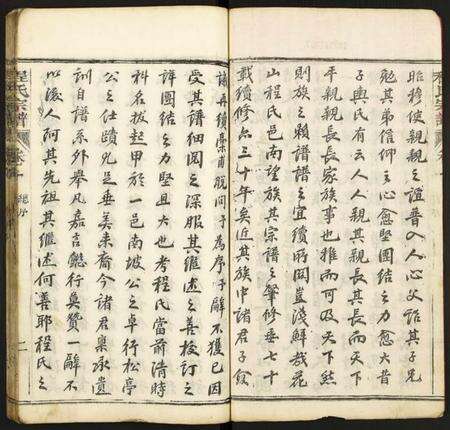 程氏宗譜
昭穆使親親之誼普入人心父詔其子兄
勉其弟信仰之心愈堅團結之力愈大昔
子輿氏有云人人親其親長其長而天下
平親親長長家族事也推而可及天下然
則族之賴譜譜之宜續所關豈淺鮮哉花
橋程氏邑南望族其宗譜之肇修垂七十
載續修亦三十年矣近其族中諸君子僉
議再續稾甫脫問序于為序予辭不獲已因
受其譜細閱之深服其繼述之善校訂之
詳團結之力堅且大也考程氏當前清時
科名拔起甲於一邑南坡公之卓行松亭
公之仕蹟足垂美來裔今諸君稟承遺
訓自譜系外舉凡嘉言懿行具贊一辭不
以後人阿其先祖其繼述何善耶程氏之
程氏宗譜
卷首
總序
二